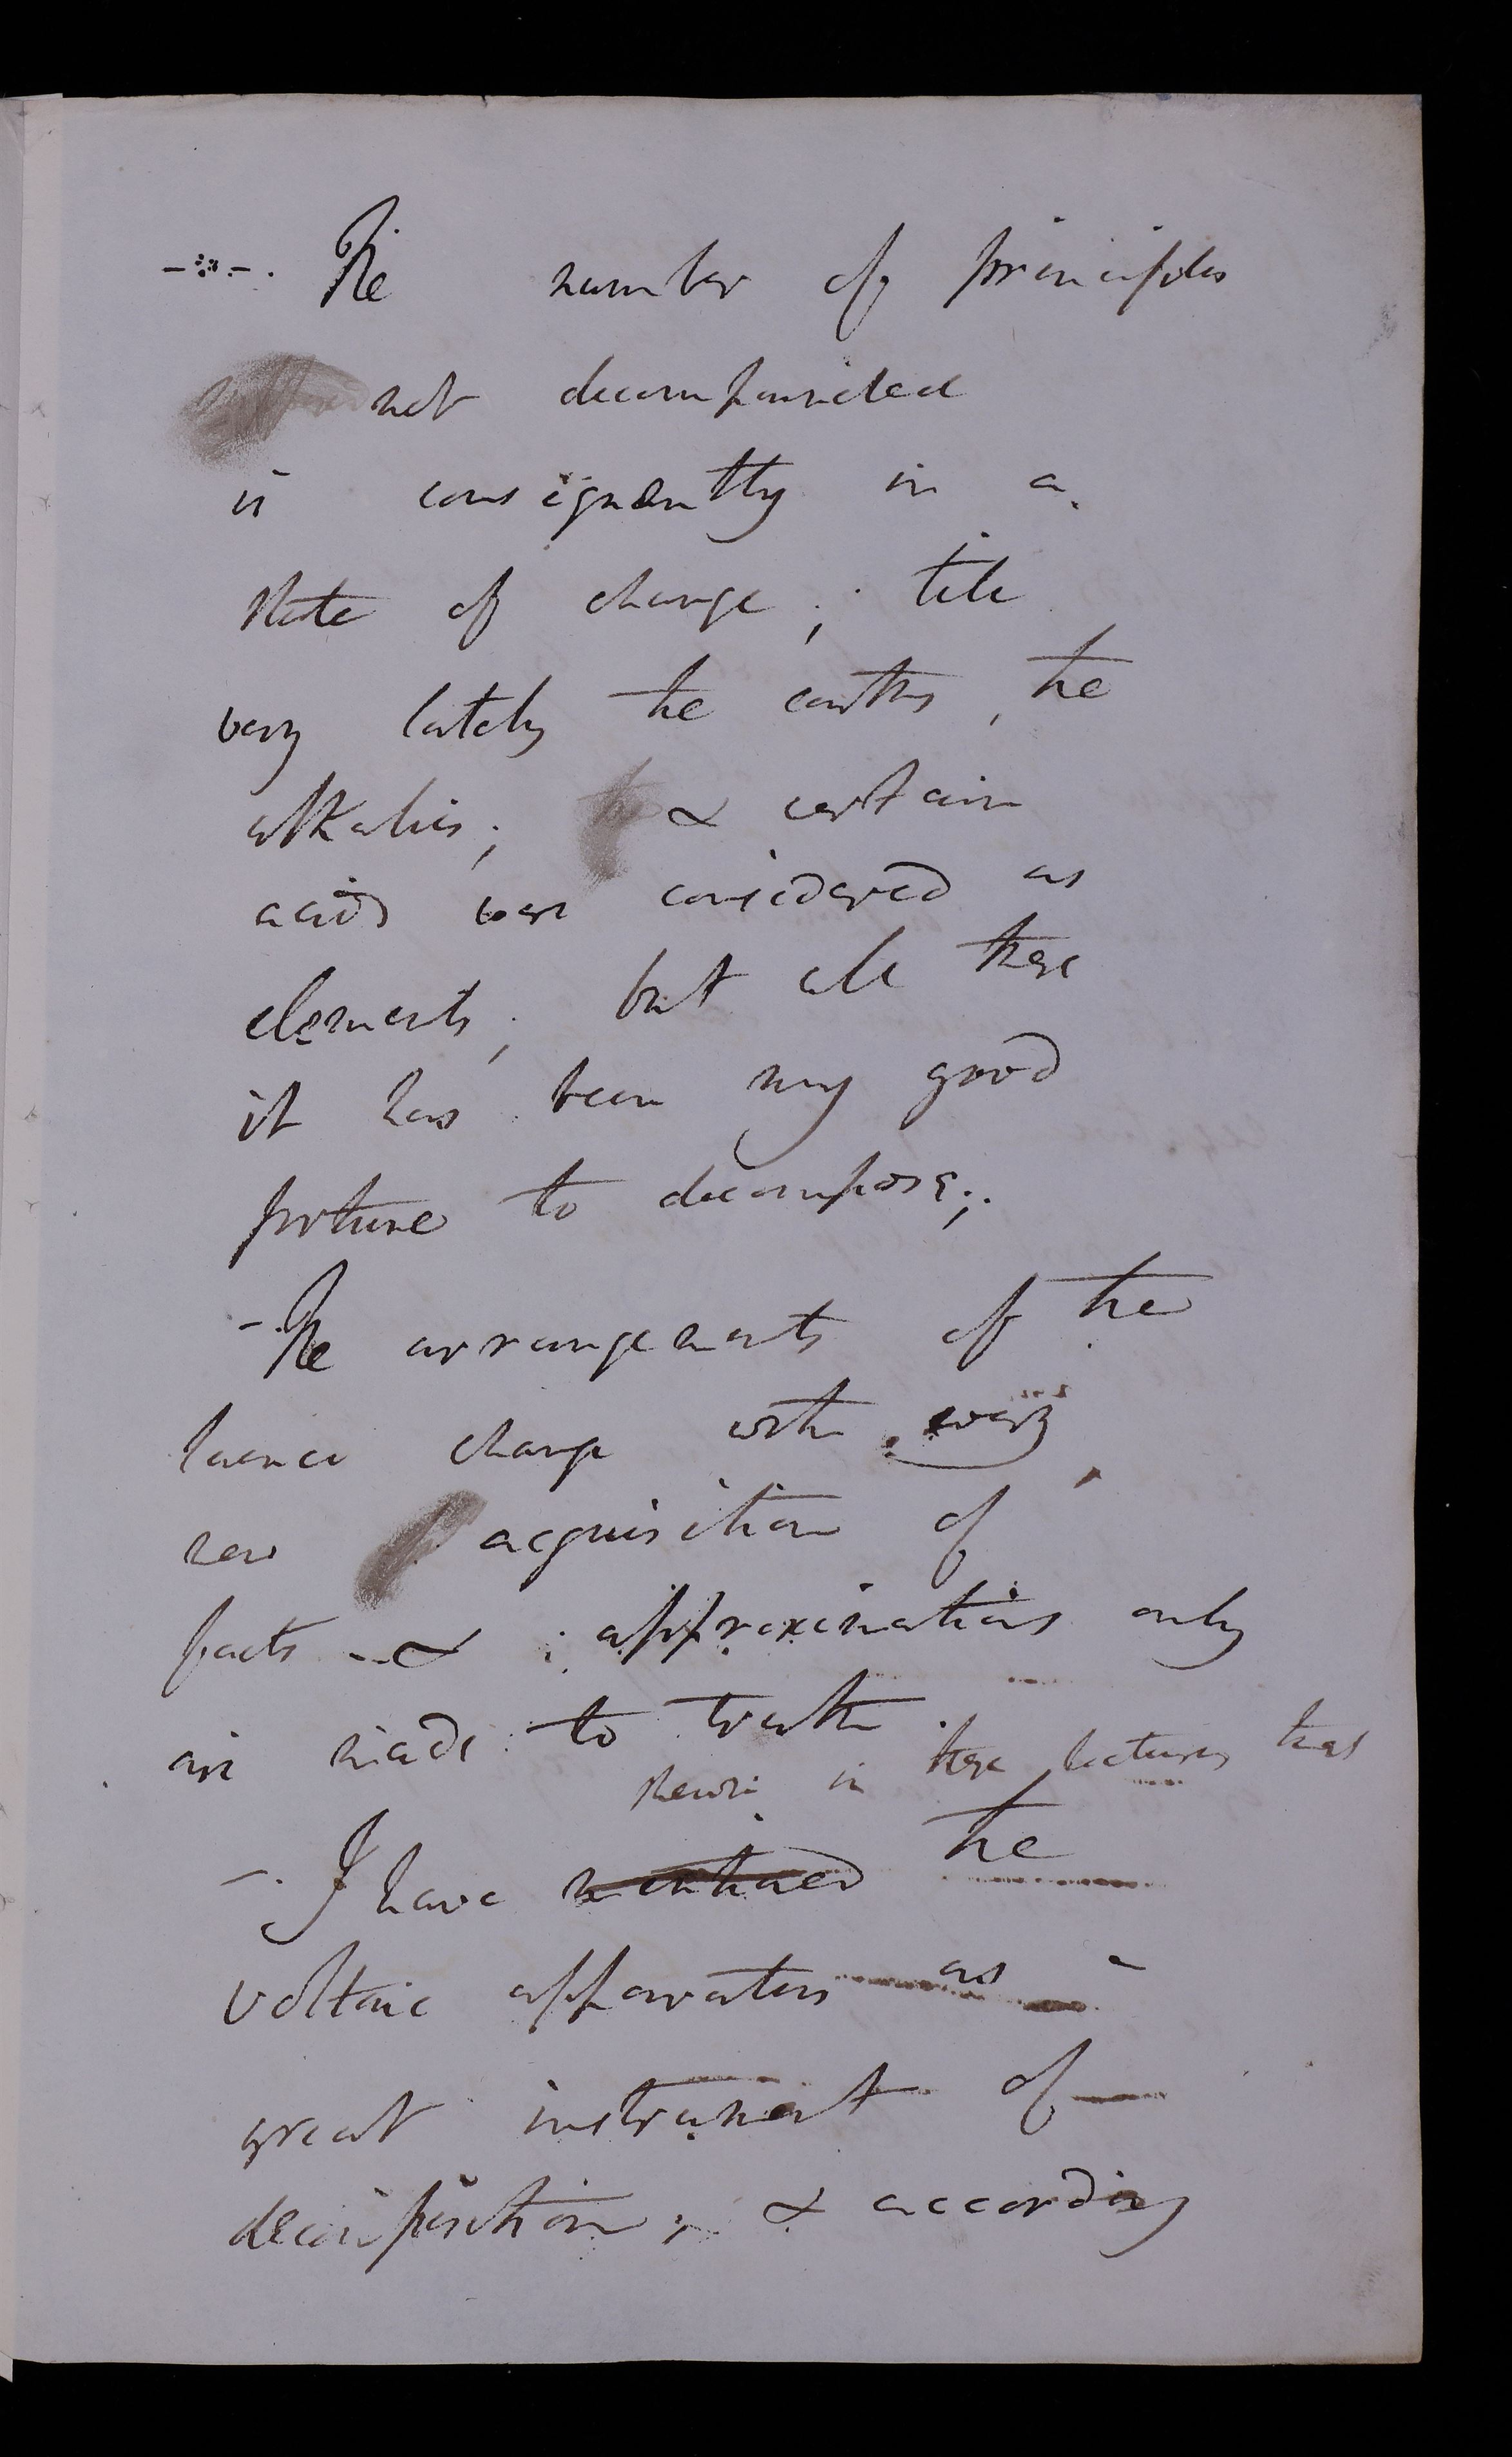 -:-. The number of principles
not decompounded
is consequently in a
state of change; till
very lately the earths, the
alkalies; & certain
acids were considered as
elements; but all these
it has been my good
fortune to decompose;.
-. The arrangements of the
science change with every
new acquisition of
facts -- & approximations only
are made to truth.
shewn in these lectures that
-. I have mentioned the
voltaic apparatus as a
great instrument of
decomposition; & according